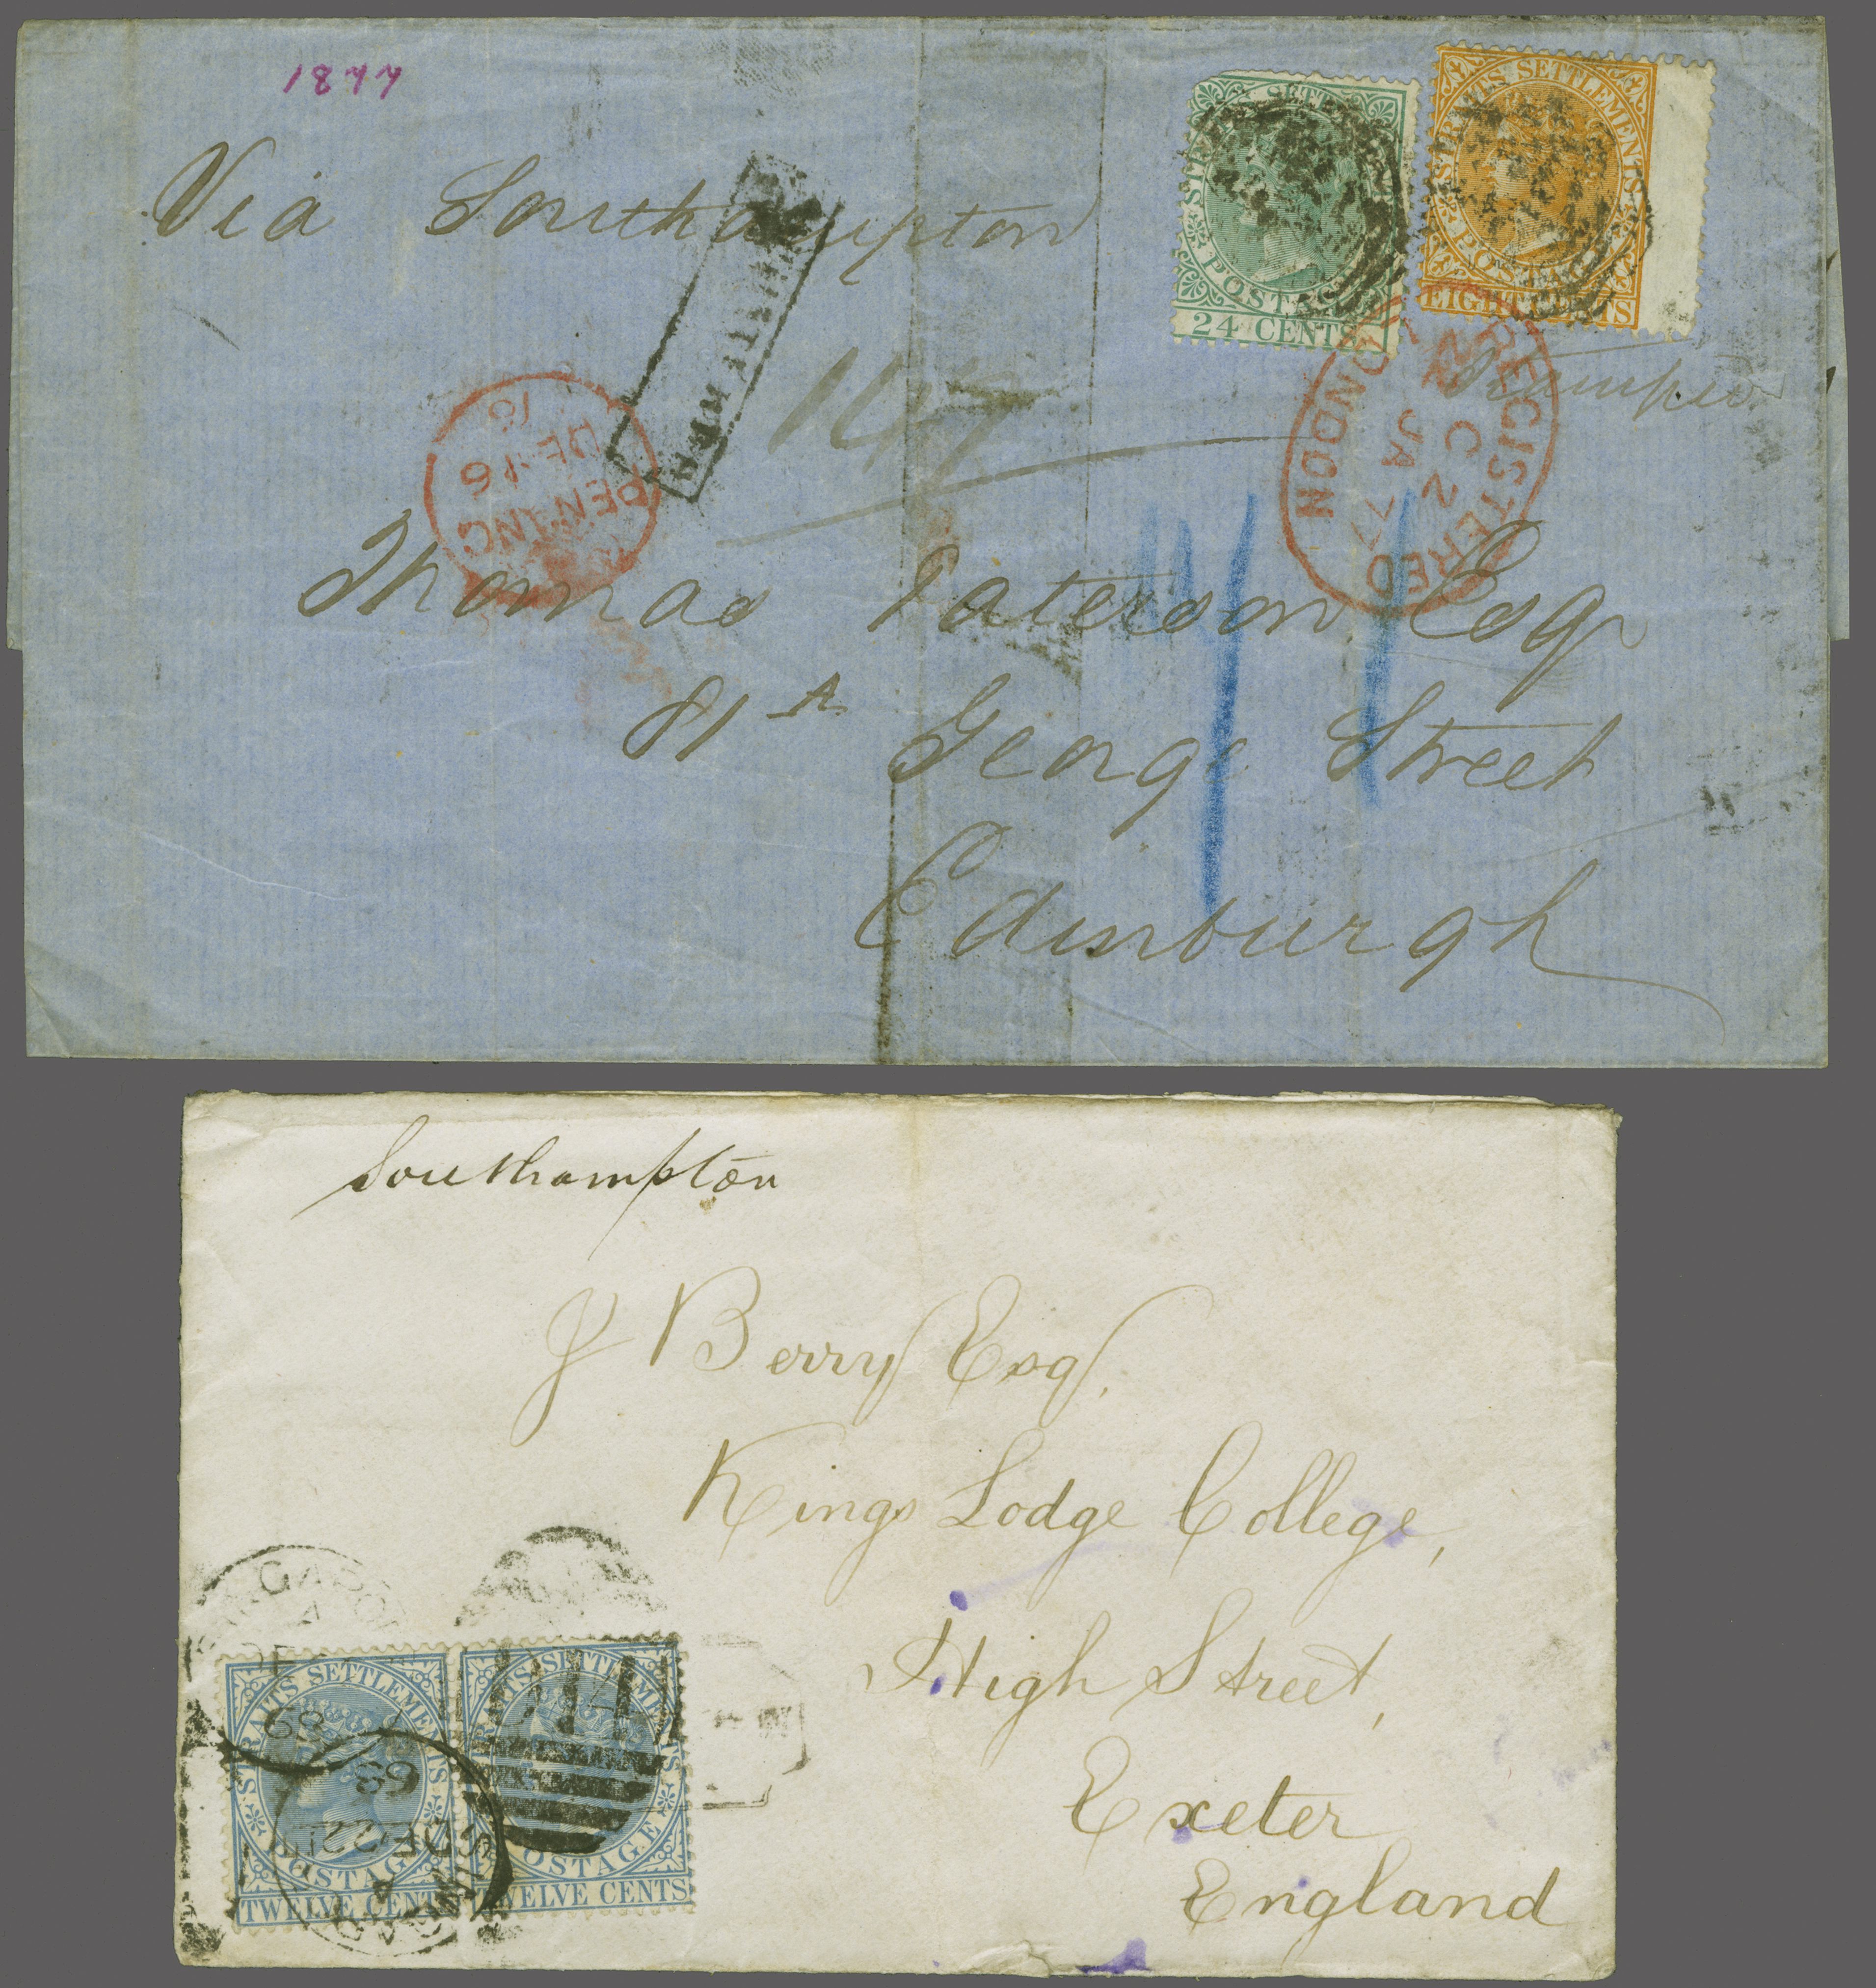 1877
Via Southampton
STRAITS SETTLEMENTS
POSTAGE
24 CENTS
STRAITS SETTLEMENTS
POSTAGE
EIGHT CENTS
REGISTERED
LONDON
C
2 JA 77
PENANG
DE 16
147
Thomas Paterson Esqr
81A George Street
Edinburgh
Southampton
J Berry Esq,
Kings Lodge College,
High Street,
Exeter
England
SINGAPORE
STRAITS SETTLEMENTS
POSTAGE
TWELVE CENTS
STRAITS SETTLEMENTS
POSTAGE
TWELVE CENTS